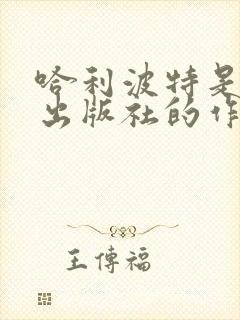 哈利波特是
出版社的作
王傳福